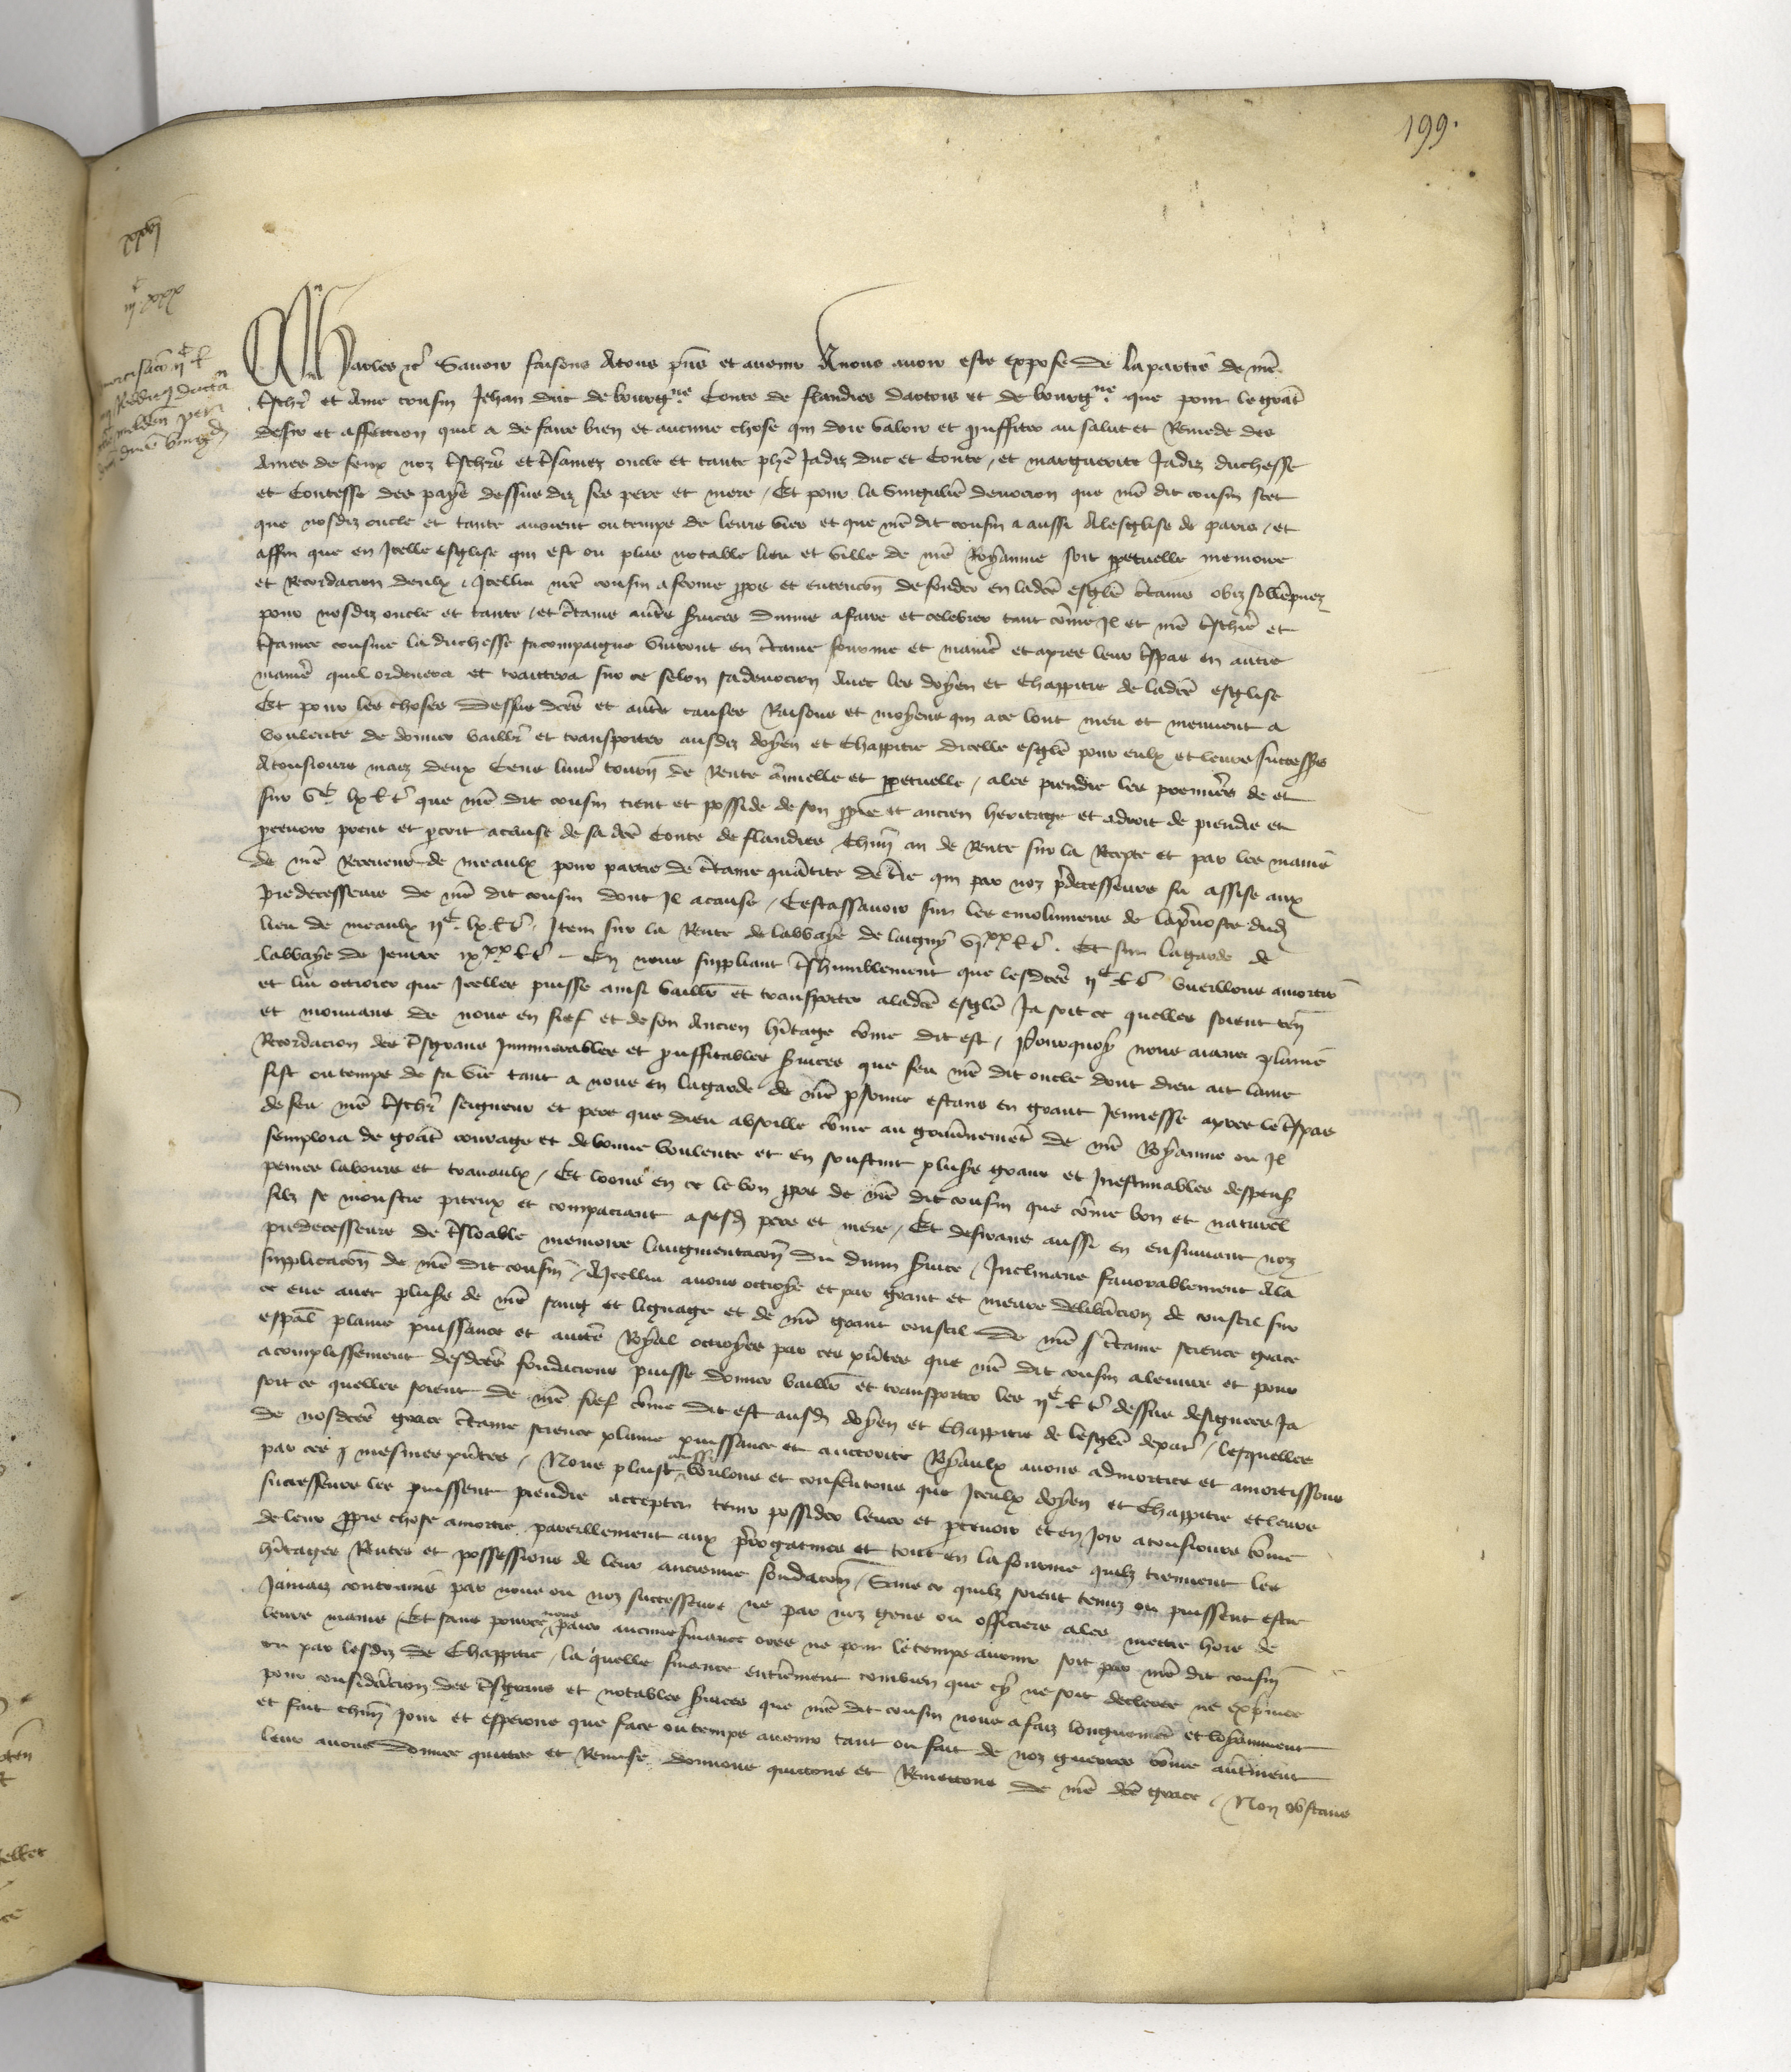 199.
Charles etc̃ Savoir faisons Atous p̃ns et avenir Anous avoir este expose de la partie de nr̃e
tr̃schr̃ et Ame cousin Jehan duc de bourgne Conte de flandres dartois et de bourgne que pour le grãt
desir et affection quil a de faire bien et aucune chose qui doie valoir et prouffiter au salut et Remede des
Ames de feux noz tr̃schr̃s et tr̃samez oncle et tante phẽ Jadiz duc et Conte / et marguerite Jadiz duchesse
et Contesse des pays dessus diz ses pere et mere / Et pour la singuliẽ devocion que nr̃e dit cousin scet
que nosdiz oncle et tante avoient ou temps de leurs vies et que nr̃e dit cousin a aussi Alesglise de paris / et
affin que en Icelle esglise qui est ou plus notable lieu et ville de nr̃e Royaume soit ppetuelle memoire
et Recordacion deulx / Icellui nr̃e cousin a ferme ppos et entencõn de fonder en ladcẽ esglẽ cẽtains obiz sollẽpnez
pour nosdiz oncle et tante / et cẽtains autr̃s s̃vices divins a faire et celebrer tant cõme Il et nr̃e tr̃schr̃e et
tr̃samee cousine la duchesse sa compaigne vivront en cẽtaine fourme et maniẽ et apres leur tr̃spas en autre
maniẽ quil ordenera et traittera sur ce selon sa devocion Avec les doyen et Chappitre de ladcẽ esglise
Et pour les choses dessus dcẽs et autr̃s causes Raisons et moyens qui a ce lont meu et meuvent a
voulente de donner baillr̃ et transporter ausdiz doyen et Chappitre dicelle esglẽ pour eulx et leurs successr̃s
Atousiours maiz deux Cens livr̃ tourñ de Rente ãnuelle et ppetuelle / a les prendre les premiers de et
sur vc lx l t̃ que nr̃e dit cousin tient et posside de son ppre et ancien heritage et a droit de prendre et
pcevoir prent et pcoit a cause de sa dcẽ Conte de flandres Chũn an de Rente sur la Recepte et par les mains
de nr̃e Receveur de meaulx pour partie de cẽtaine quãtite de tr̃e qui par noz p̃decesseurs fu assise aux
predecesseurs de nr̃e dit cousin dont Il a cause / Cestassavoir sur les emolumens de la p̃voste dud
lieu de meaulx iic lx l t̃ / Item sur la Rente de labbaye de laigny vixx l t̃ . Et sur lagarde de
labbaye de Jouerre ixxx l t̃ – En nous suppliant tr̃shumblement que lesdcẽs iic l t̃ vueillons amortir
et lui octroier que Icelles puisse ainsi baillr̃ et transporter a ladcẽ esglẽ Ja soit ce quelles soient teñ
et mouvans de nous en fief et de son Ancien hr̃itage cõme dit est / Pourquoy nous aians plaine
Recordacion des tr̃sgrans Innumerables et prouffitables s̃vices que feu nr̃e dit oncle dont dieu ait lame
fist ou temps de sa vie tant a nous en lagarde de nr̃e psonne estans en grant Jeunesse apres le tr̃spas
de feu nr̃e tr̃schr̃ seigneur et pere que dieu absoille cõme au gouv̾nemẽt de nr̃e Royaume ou Il
semploia de grãt courage et de bonne voulente et en soustint plus̃s grans et Inestimables despens
peines labours et travaulx / Et loons en ce le bon ppos de nr̃e dit cousin que cõme bon et naturel
filz se monstre piteux et compaciant a sesd pere et mere / Et desirans aussi en ensuivant noz
predecesseurs de tr̃sloable memoire laugmentacõn du divin s̃vice / Inclinans favorablement Ala
supplicacõn de nr̃e dit cousin / A Icellui avons octroye et par grant et meure delibr̃acion de conseil sur
ce eue avec plus̃s de nr̃e sang et lignage et de nr̃e grant conseil de nr̃e cẽtaine science grace
espãl plaine puissance et autr̃e Royal octroyons par ces p̃ntes que nr̃e dit cousin a leuvre et pour
acomplissement desdcẽs fondacions puisse donner baillr̃ et transporter les iic l t̃ dessus designees Ja
soit ce quelles soient de nr̃e fief cõme dit est ausd doyen et Chappitre de lesglẽ de par̃ / lesquelles
de nosdcẽs grace cẽtaine science plaine puissance et auctorite Royaulx avons admorties et amortissons
par ces mesmes p̃ntes / Nous plaist aussi voulons et consentons que Iceulx doyen et Chappitre et leurs
successeurs les puissent prendre accepter tenir possider lever et pcevoir et en Joir atousiours cõme
de leur ppre chose amortie pareillement aux p̃rogatives et tout en la fourme quilz tiennent les
hr̃itages Rentes et possessions de leur ancienne fondacõn / Sans ce quilz soient tenuz ou puissent estre
Jamaiz contrains par nous ou noz successeurs ne par noz gens ou officiers a les mettre hors de
leurs mains / Et sans pour ce nous paier aucune finance ores ne pour le temps avenir soit par nr̃e dit cousin
ou par lesdiz de Chappitre / la quelle finance entierement combien que cy ne soit declaree ne exp̃mee
pour considr̃acion des tr̃sgrans et notables s̃vices que nr̃e dit cousin nous a faiz longuemẽt et loyaument
et fait chũn Jour et esperons que face ou temps avenir tant ou fait de noz guerres cõme autr̃ment
leur avons donnee quittee et Remise donnons quittons et Remettons de nr̃e dcẽ grace / Non obstans